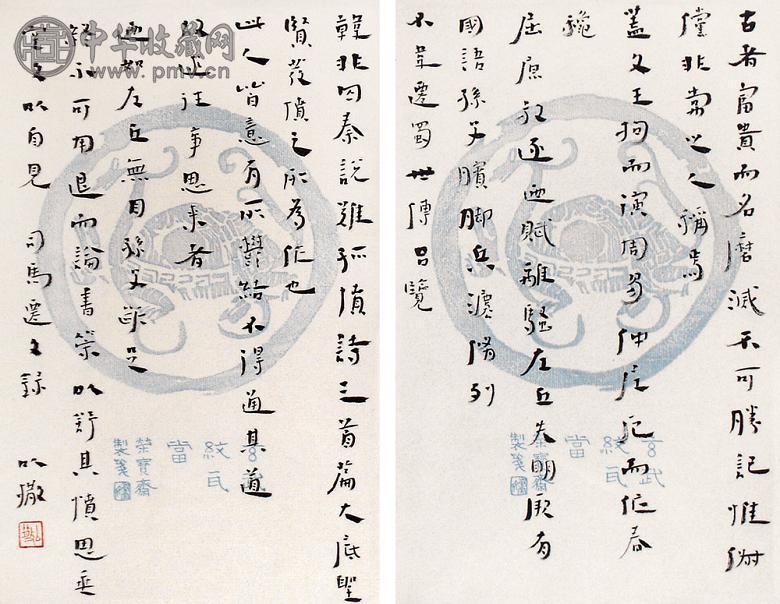 古者富貴而名磨滅不可勝記惟倜
儻非常之人稱焉
蓋文王拘而演周易仲尼厄而作春
秋
屈原放逐迺賦離騷左丘失明厥有
國語孫子臏脚兵灋脩列
不韋遷蜀世傳呂覽
韓非囚秦說難孤憤詩三百篇大底聖
賢發憤之所為作也
此人皆意有所鬱結不得通其道
故述往事思來者
迺如左丘無目孫子斷足
終不可用退而論書策以舒其憤思垂
空文以自見 司馬遷文錄
玄武
紋瓦
當
榮寶齋
製箋
玄武
紋瓦
當
榮寶齋
製箋
中华收藏网
www.pmv.cn